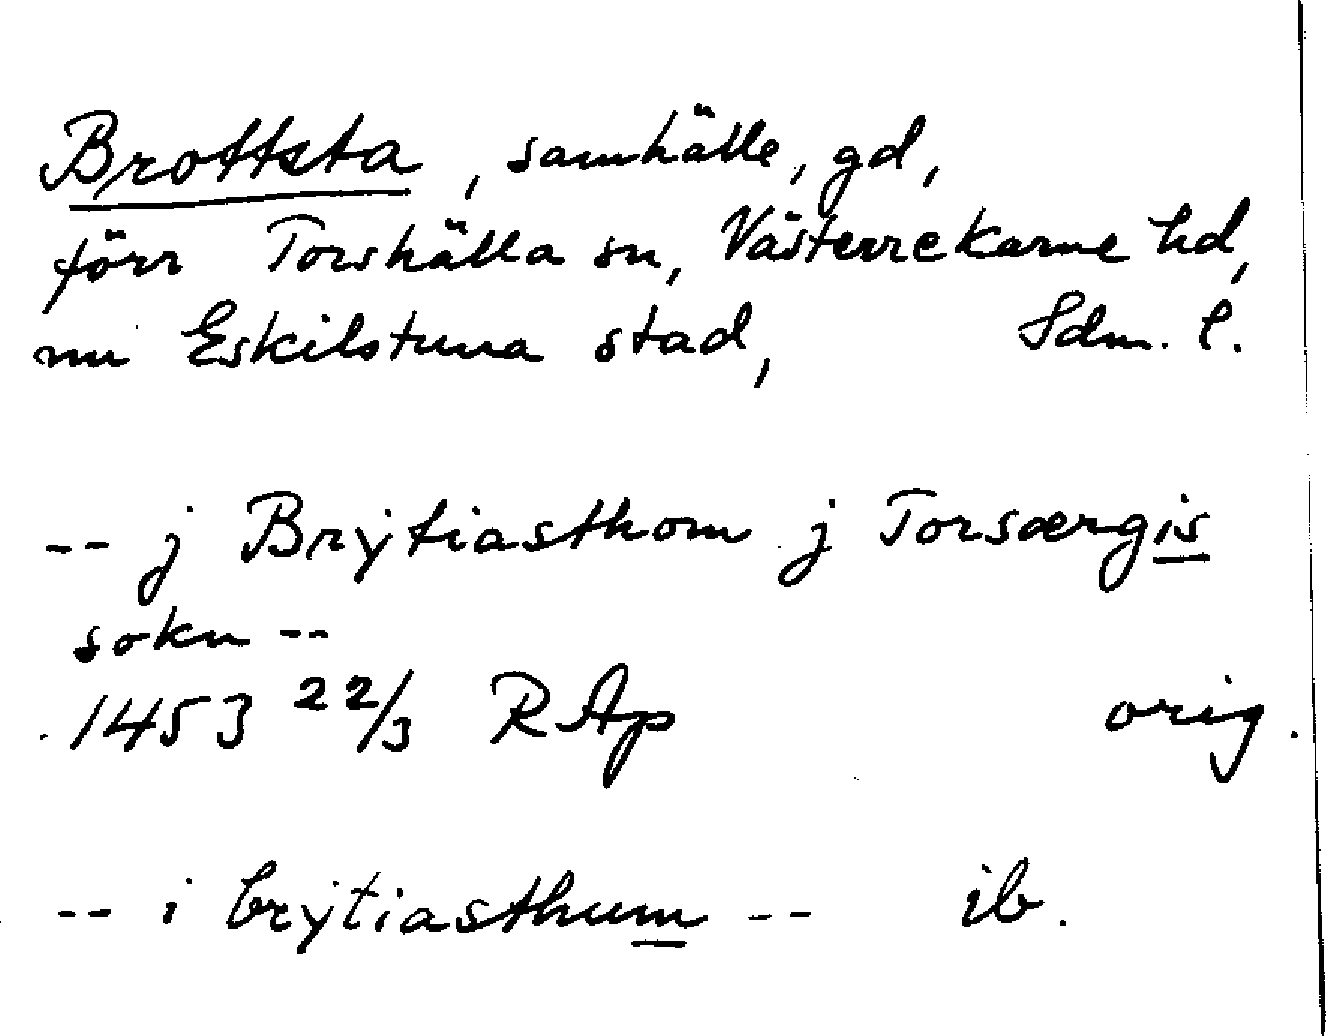 Brottsta, samhälle, gd,
förr Torshälla sn, Västerrekarne hd,
nu Eskilstuna stad, Sdm. l.
-- j Brÿtiasthom j Torsærgis
sokn --
1453 22/3 RAp orig.
-- i brÿtiasthum -- ib.